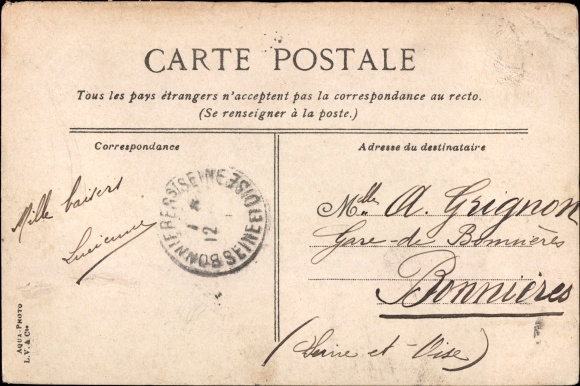 CARTE POSTALE
Tous les pays étrangers n'acceptent pas la correspondance au recto.
(Se renseigner à la poste.)
Correspondance
Adresse du destinataire
Mille baisers
Lucienne
BONNIERES S SEINE SEINE ET OISE
12
Mlle A. Grignon
Gare de Bonnières
Bonnières
(Seine-et-Oise)
AQUA-PHOTO
L.V. & Cie